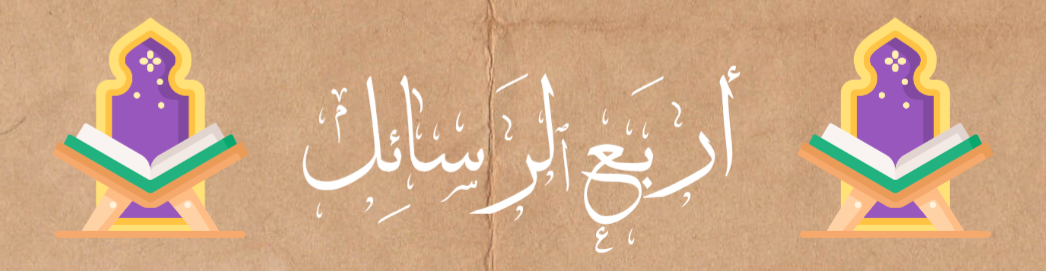 أربَع الرَسائِل